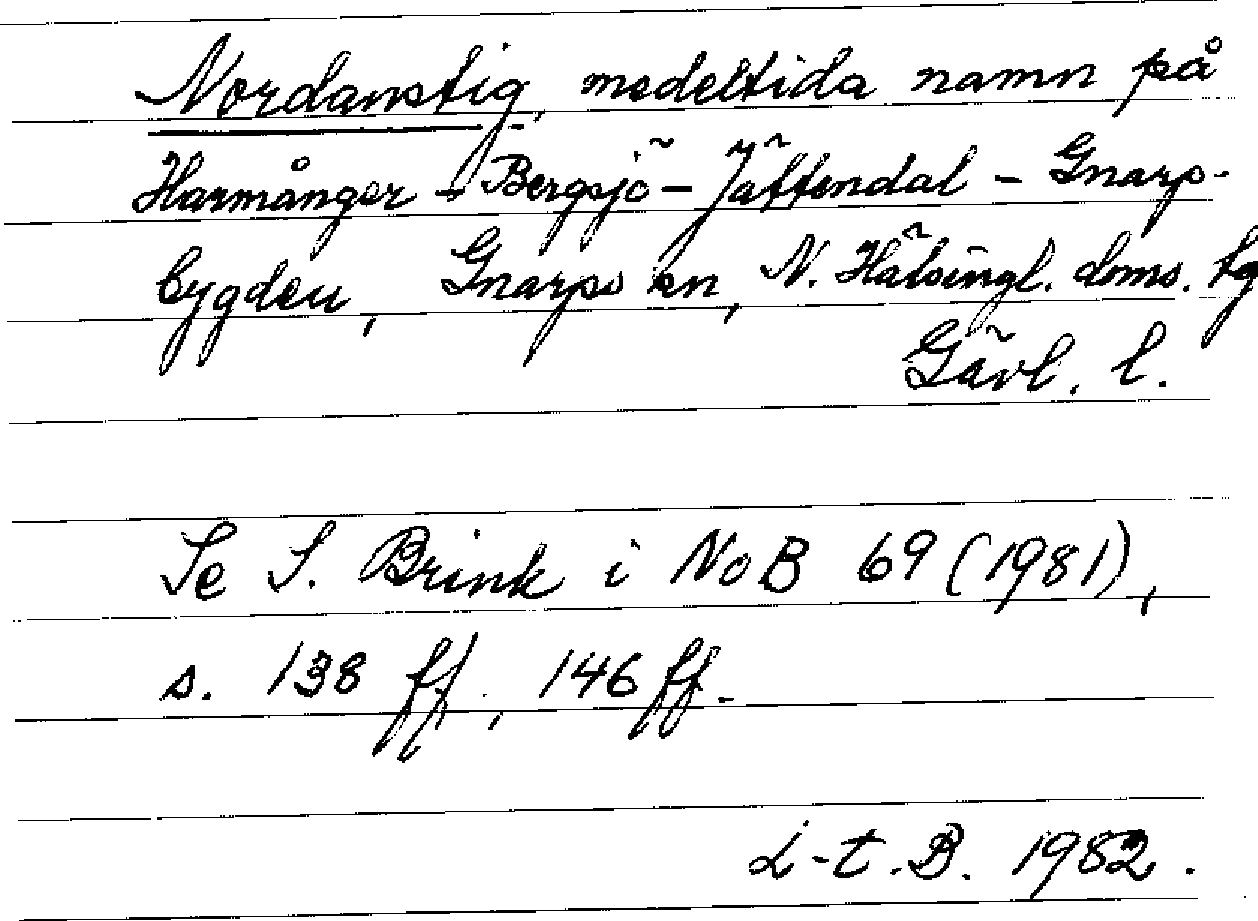 Nordanstig, medeltida namn på
Harmånger - Bergsjö - Jättendal - Gnarps-
bygden, Gnarps sn, N. Hälsingl. doms. tg
Gävl. l.
Se S. Brink i NoB 69 (1981),
s. 138 ff, 146 ff.
L-t. B. 1982.